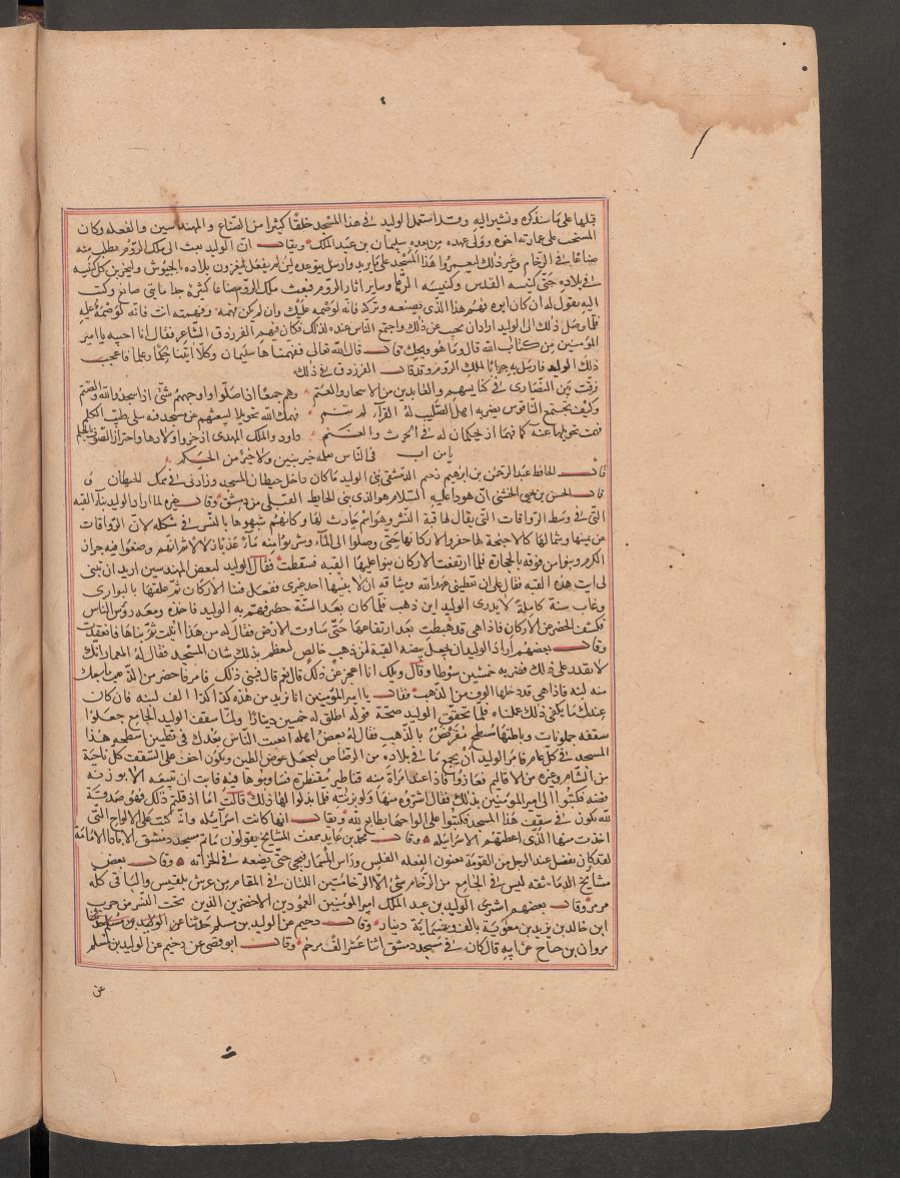 قبلها على ما سنذكره ونشير اليه وقد استعمل الوليد في هذا المسجد خلقا كثيرا من الصناع والمهندسين والفعله وكان
المستحث على عمارته اخوه وولى عهده من بعده سليمان بن عبد الملك ويقال ان الوليد بعث الى ملك الروم يطلب منه
صناعا في الرخام وغير ذلك ليعمروا هذا المسجد على ما يريد وارسل يتوعده لئن لم يفعل ليغزون بلاده بالجيوش وليخربن كل كنيسه
في بلاده حتى كنيسه القدس وكنيسه الرها وساير اثار الروم فبعث ملك الروم صناعا كثيرة جدا مايتى صانع وكتب
اليه يقول له ان كان ابوك فهم هذا الذى تصنعه وتركه فانه لوصمه عليك وان لم يكن فهمه وفهمته انت فانه لوصمة عليه
فلما وصل ذلك الى الوليد اراد ان يجيب عن ذلك واجتمع الناس عنده لذلك فكان فيهم الفرزدق الشاعر فقال انا اجيبه يا امير
المؤمنين من كتاب الله قال وما هو ويحك قال قال الله تعالى ففهمناها سليمان وكلا اتينا حكما وعلما فاعجب
ذلك الوليد فارسل به جوابا لملك الروم وقد قال الفرزدق في ذلك
فرقت بين النصارى في كنايسهم والعابدين من الاسحار والعتم وهم جميعا اذا صلوا واوجههم شتى اذا سجدوا لله والصنم
وكيف يجتمع الناقوس يضربه اهل الصليب له القراء لم ينم فهمك الله تحويلا لبيعتهم عن مسجد فيه يتلى طيب الكلم
فهمت تحويلها عنه كما فهما اذ يحكمان له في الحرث والغنم داود والملك المهدى اذ
في الناس نعلمه خير بنين ولا خير من الحكم
قال الحافظ عبد الرحمن بن ابرهيم دحيم الدمشقى بنى الوليد ما كان داخل حيطان المسجد وزاد في سمك الحيطان و
قال الحسن بن يحيى الخشنى ان هودا عليه السلام هو الذى بنى الحايط القبلى من دمشق وقال غيره لما اراد الوليد بناء القبه
التى في وسط الرواقات التى يقال لها قبة النسر وهو اسم حادث لها وكانهم شبهوها بالنسر في شكله لان الرواقات
عن يمينها وشمالها كالاجنحة لها حفر لاركانها حتى وصلوا الى الماء وشربوا منه ماء عذبا زلالا ثم انهم وضعوا فيه جرار
الكرم وبنوا من فوقه بالحجارة فلما ارتفعت الاركان بنوا عليها القبه فسقطت فقال الوليد لبعض المهندسين اريد ان تبنى
لى انت هذه القبه فقال على ان تعطينى عهد الله وميثاقه ان لا يبنيها احد غيرى ففعل فبنا الاركان ثم غلفها بالبوارى
وغاب سنة كاملة لا يدرى الوليد اين ذهب فلما كان بعد السنة حضر فهم به الوليد فاخذه ومعه رؤس الناس
فكشف الحصر عن الاركان فاذا هى قد هبطت بعد ارتفاعها حتى ساوت الارض فقال له من هذا اتيت ثم بناها فانعقدت
وقال بعضهم اراد الوليد ان يجعل بيضه القبة من ذهب خالص ليعظم بذلك شان المسجد فقال له المعمار انك
لا تقدر على ذلك فضربه خمسين سوطا وقال ويلك انا اعجز عن ذلك قال نعم قال فبين ذلك فامر فاحضر من الذهب ما سبك
منه لبنه فاذا هى قد دخلها الوف من الذهب فقال يا امير المؤمنين انا نريد من هذه كذا كذا الف لبنه فان كان
عندك ما يكفى ذلك عملناه فلما تحقق الوليد صحة قوله اطلق له خمسين دينارا ولما سقف الوليد الجامع جعلوا
سقفه جملونات وباطنها مسطح مقرنص بالذهب فقال له بعض اهله اتعبت الناس بعدك في تطيين اسطحه هذا
المسجد في كل عام فامر الوليد ان يجمع ما في بلاده من الرصاص ليجعل عوض الطين ويكون اخف على السقف كل ناحية
من الشام وغيره من الاقاليم فعازوا فاذا عند امراة منه قناطير مقنطرة فساوموها فيه فابت ان تبيعه الا بوزنه
فضه فكتبوا الى امير المؤمنين بذلك فقال اشتروه منها ولو بوزنه فلما بذلوا لها ذلك قالت اما اذ قلتم ذلك فهو صدقة
لله يكون في سقف هذا المسجد فكتبوا على الواحها بطابع لله ويقال انها كانت اسرائيليه وانه كتب على الالواح التى
اخذت منها الذى اعطتهم الاسرائيله وقال محمد بن عايد سمعت المشايخ يقولون ما تم مسجد دمشق الا باداء الامانة
لقد كان يفضل عند الرجل من القومة يعنون الفعله الفلس وراس المسمار فيجى حتى يضعه في الخزانه وقال بعض
مشايخ الدماشقه ليس في الجامع من الرخام شئ الا الرخامتين اللتان في المقام من عرش بلقيس والباقى كله
مرمر وقال بعضهم اشترى الوليد بن عبد الملك امير المؤمنين العمودين الاخضرين الذين تحت النسر من حرب
ابن خالد بن يزيد بن معوية بالف وخمسماية دينار وقال دحيم عن الوليد بن مسلم حدثنا
مروان بن جناح عن ابيه قال كان في مسجد دمشق اثنا عشر الف مرخم وقال ابو قصى عن دحيم عن الوليد بن مسلم
عن